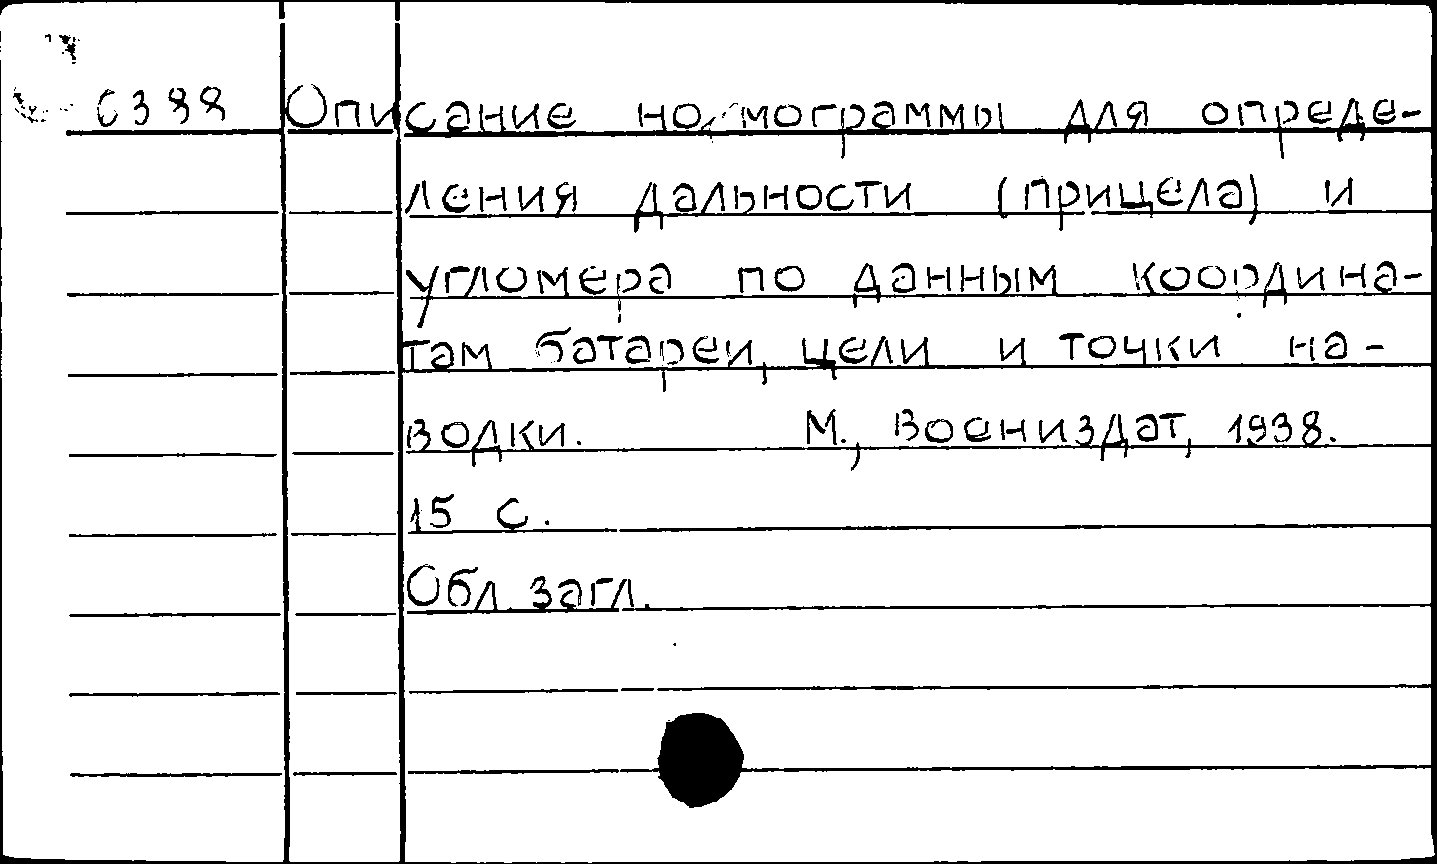 С388 Описание номограммы для опреде-
ления дальности (прицела) и
угломера по данным координа-
там батареи, цели и точки на-
водки. М., Воениздат, 1938.
15 с.
Обл. загл.